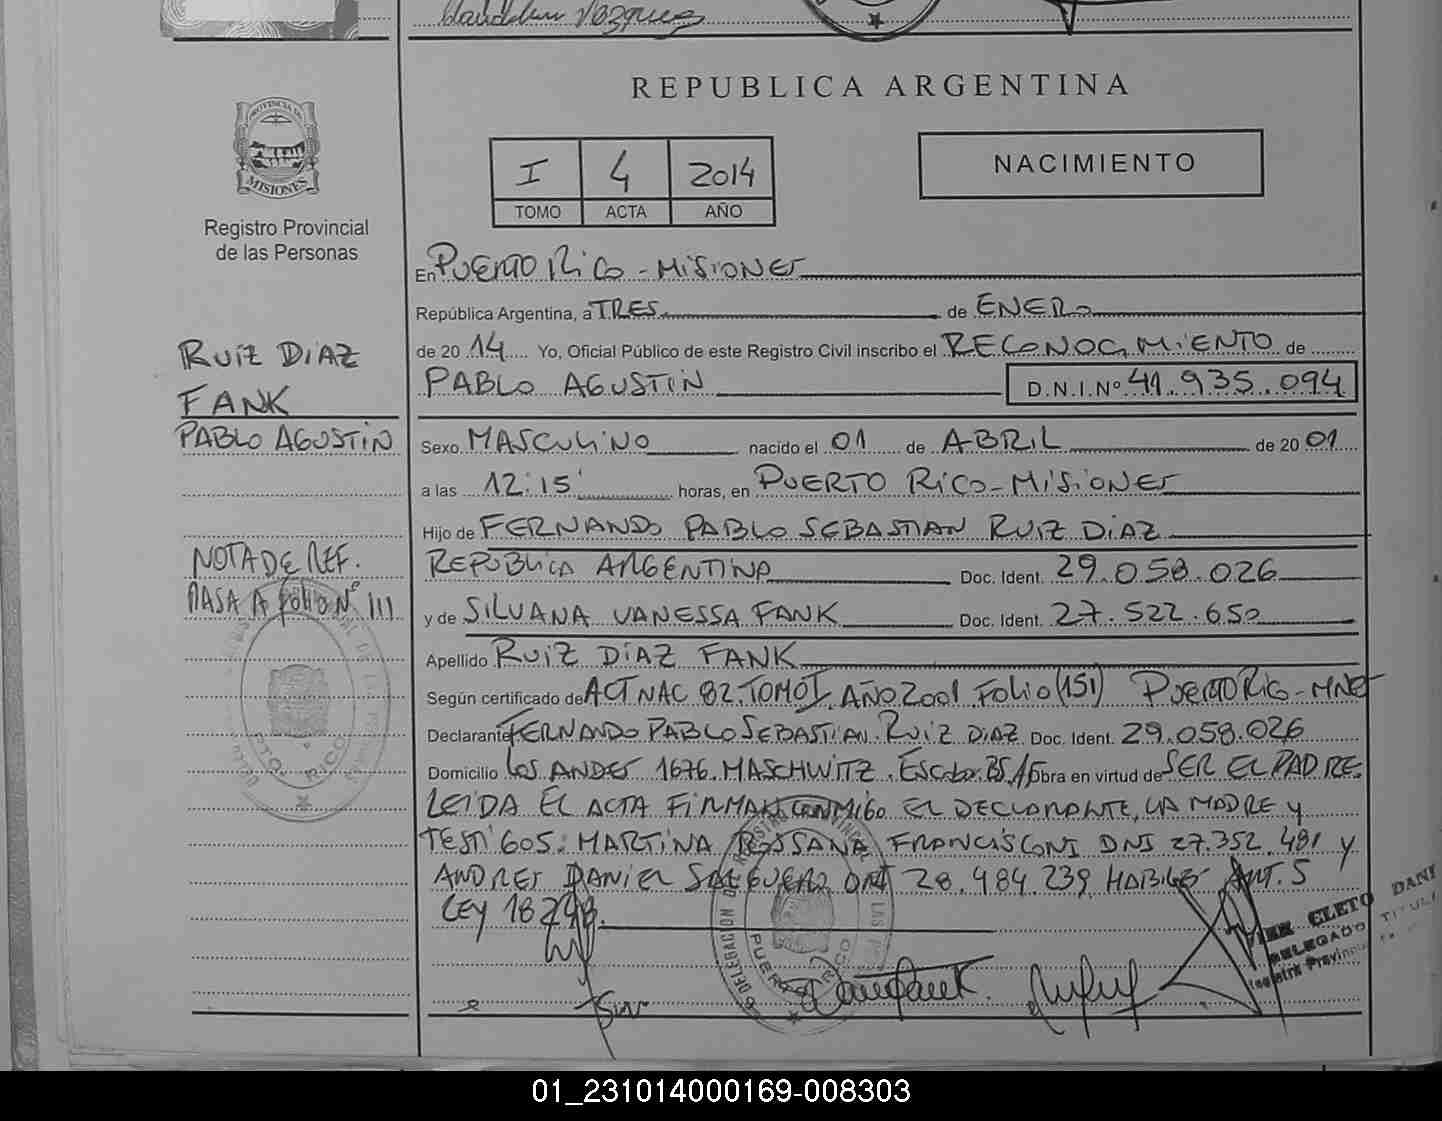 Vazquez
REPUBLICA ARGENTINA
PROVINCIA DE
MISIONES
Registro Provincial
de las Personas
I 4 2014
TOMO ACTA AÑO
NACIMIENTO
En PUERTO RICO - MISIONES
República Argentina, a TRES de ENERO
de 20 14 Yo, Oficial Público de este Registro Civil inscribo el RECONOCIMIENTO de
PABLO AGUSTIN D.N.I.Nº 41.935.094
RUIZ DIAZ
FANK
PABLO AGUSTIN
Sexo MASCULINO nacido el 01 de ABRIL de 20 01
a las 12:15' horas, en PUERTO RICO - MISIONES
Hijo de FERNANDO PABLO SEBASTIAN RUIZ DIAZ
REPUBLICA ARGENTINA Doc. Ident. 29.058.026
y de SILVANA VANESSA FANK Doc. Ident. 27.522.650
Apellido RUIZ DIAZ FANK
NOTA DE REF.
PASA A FOLIO Nº 111
Según certificado de ACT NAC 82. TOMO I. AÑO 2001 FOLIO (151) PUERTO RICO - MNES
Declarante FERNANDO PABLO SEBASTIAN RUIZ DIAZ Doc. Ident. 29.058.026
Domicilio LOS ANDES 1676. MASCHWITZ. ESCOBAR. BS AS Obra en virtud de SER EL PADRE.
LEIDA EL ACTA FIRMAN CONMIGO EL DECLARANTE, LA MADRE Y
TESTIGOS: MARTINA ROSSANA FRANCISCONI DNI 27.352.481 Y
ANDRES DANIEL SALGUERO DNI 28.984.239 HABILES ART. 5
LEY 18248.
PTO. RICO
DELEGACION
REGISTRO PROVINCIAL DE LAS
PUERTO RICO
CLETO DANI
DELEGADO TITUL
Registro Provinc
01_231014000169-008303